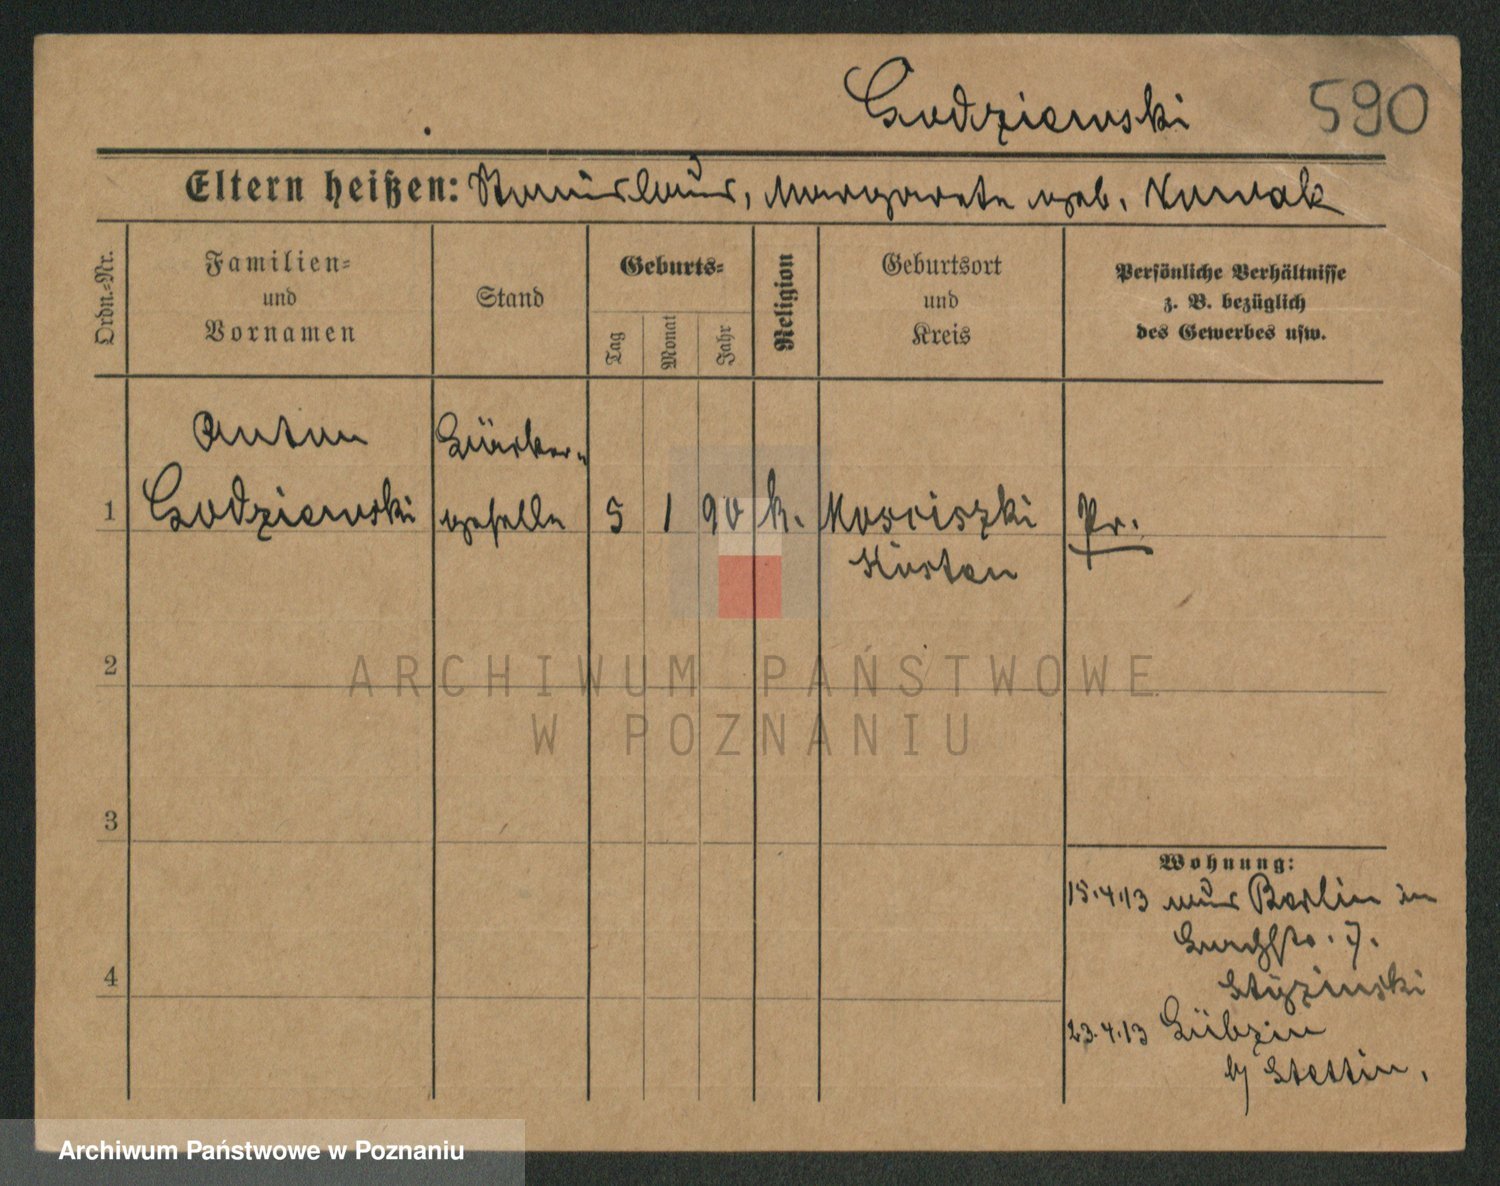 Godziewski
590
Eltern heißen: Stanislaus, Margarete geb. Nowak
Ordn.=Nr.
Familien=
und
Vornamen
Stand
Geburts=
Tag
Monat
Jahr
Religion
Geburtsort
und
Kreis
Persönliche Verhältnisse
z. B. bezüglich
des Gewerbes usw.
Anton
1 Godziewski
geselle
5 1 90 k. Mosciszki Pr.
Kosten
2
ARCHIWUM PAŃSTWOWE
W POZNANIU
3
4
Wohnung:
15.4.13 aus Berlin in
23.4.13 Lübzin
b/ Stettin.
Archiwum Państwowe w Poznaniu